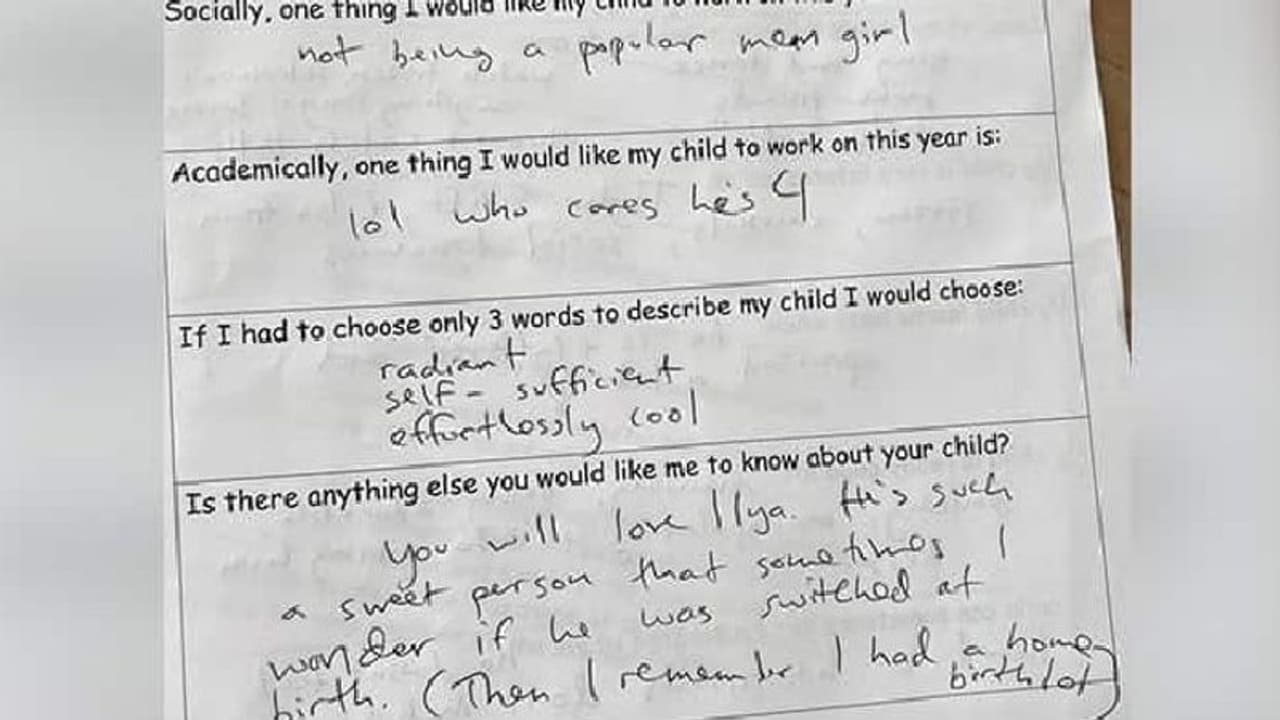 Socially, one thing I would like my child to work on this
not being a popular mean girl
Academically, one thing I would like my child to work on this year is:
lol who cares he's 4
If I had to choose only 3 words to describe my child I would choose:
radiant
self-sufficient
effortlessly cool
Is there anything else you would like me to know about your child?
You will love Ilya. He's such
a sweet person that sometimes I
wonder if he was switched at
birth. (Then I remember I had a home
birth lol)